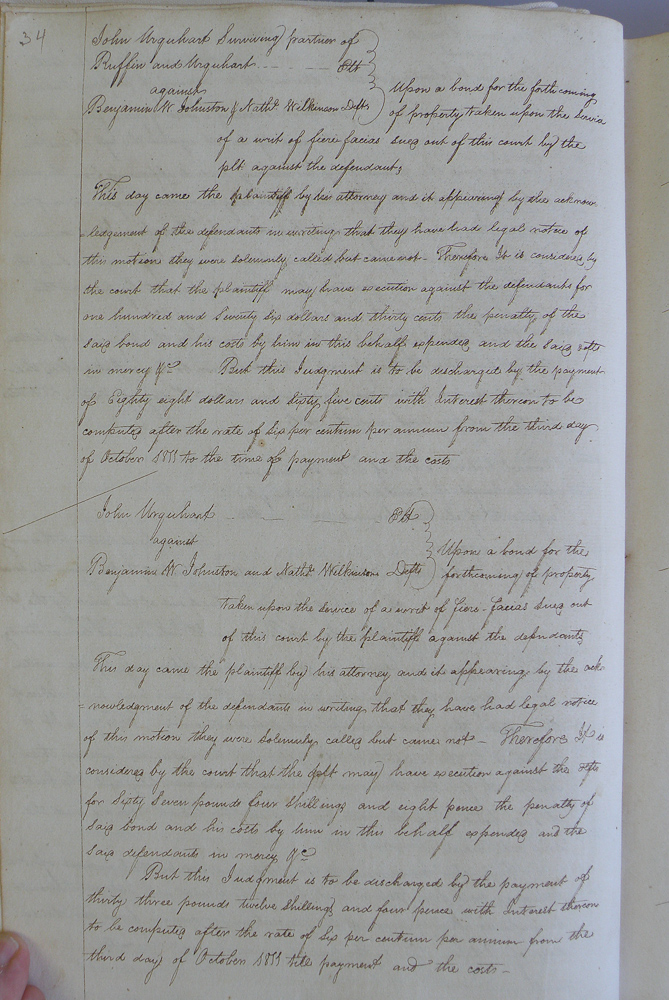 34
John Urquhart Surviving partner of
Ruffin and Urquhart Plt
against
Benjamin W. Johnston & Nathl. Wilkinson Defts
Upon a bond for the forthcoming
of property taken upon the service
of a writ of fiere facias sued out of this court by the
plt against the defendants
This day came the plaintiff by his attorney and it appearing by the acknow
=ledgement of the defendants in writing that they have had legal notice of
this motion they were solemnly called but came not - Therefore It is considered by
the court that the plaintiff may have execution against the defendants for
one hundred and Seventy Six dollars and thirty cents the penalty of the
said bond and his costs by him in this behalf expended and the said defts
in mercy &c But this Judgment is to be discharged by the payment
of Eighty eight dollars and Sixty five cents with Interest thereon to be
computed after the rate of Six per centum per annum from the third day
of October 1811 to the time of payment and the costs
John Urquhart Plt
against
Benjamin W. Johnston and Nathl. Wilkinson Defts
Upon a bond for the
forthcoming of property
taken upon the service of a writ of fiere-facias sued out
of this court by the plaintiff against the defendants
This day came the plaintiff by his attorney and it appearing by the ack
=nowledgment of the defendants in writing that they have had legal notice
of this motion they were solemnly called but came not - Therefore It is
considered by the court that the plt may have execution against the defts
for Sixty Seven pounds four Shillings and eight pence the penalty of
said bond and his costs by him in this behalf expended and the
said defendants in mercy &c
But this Judgment is to be discharged by the payment of
thirty three pounds twelve Shillings and four pence with Interest thereon
to be computed after the rate of Six per centum per annum from the
third day of October 1811 till payment and the costs -